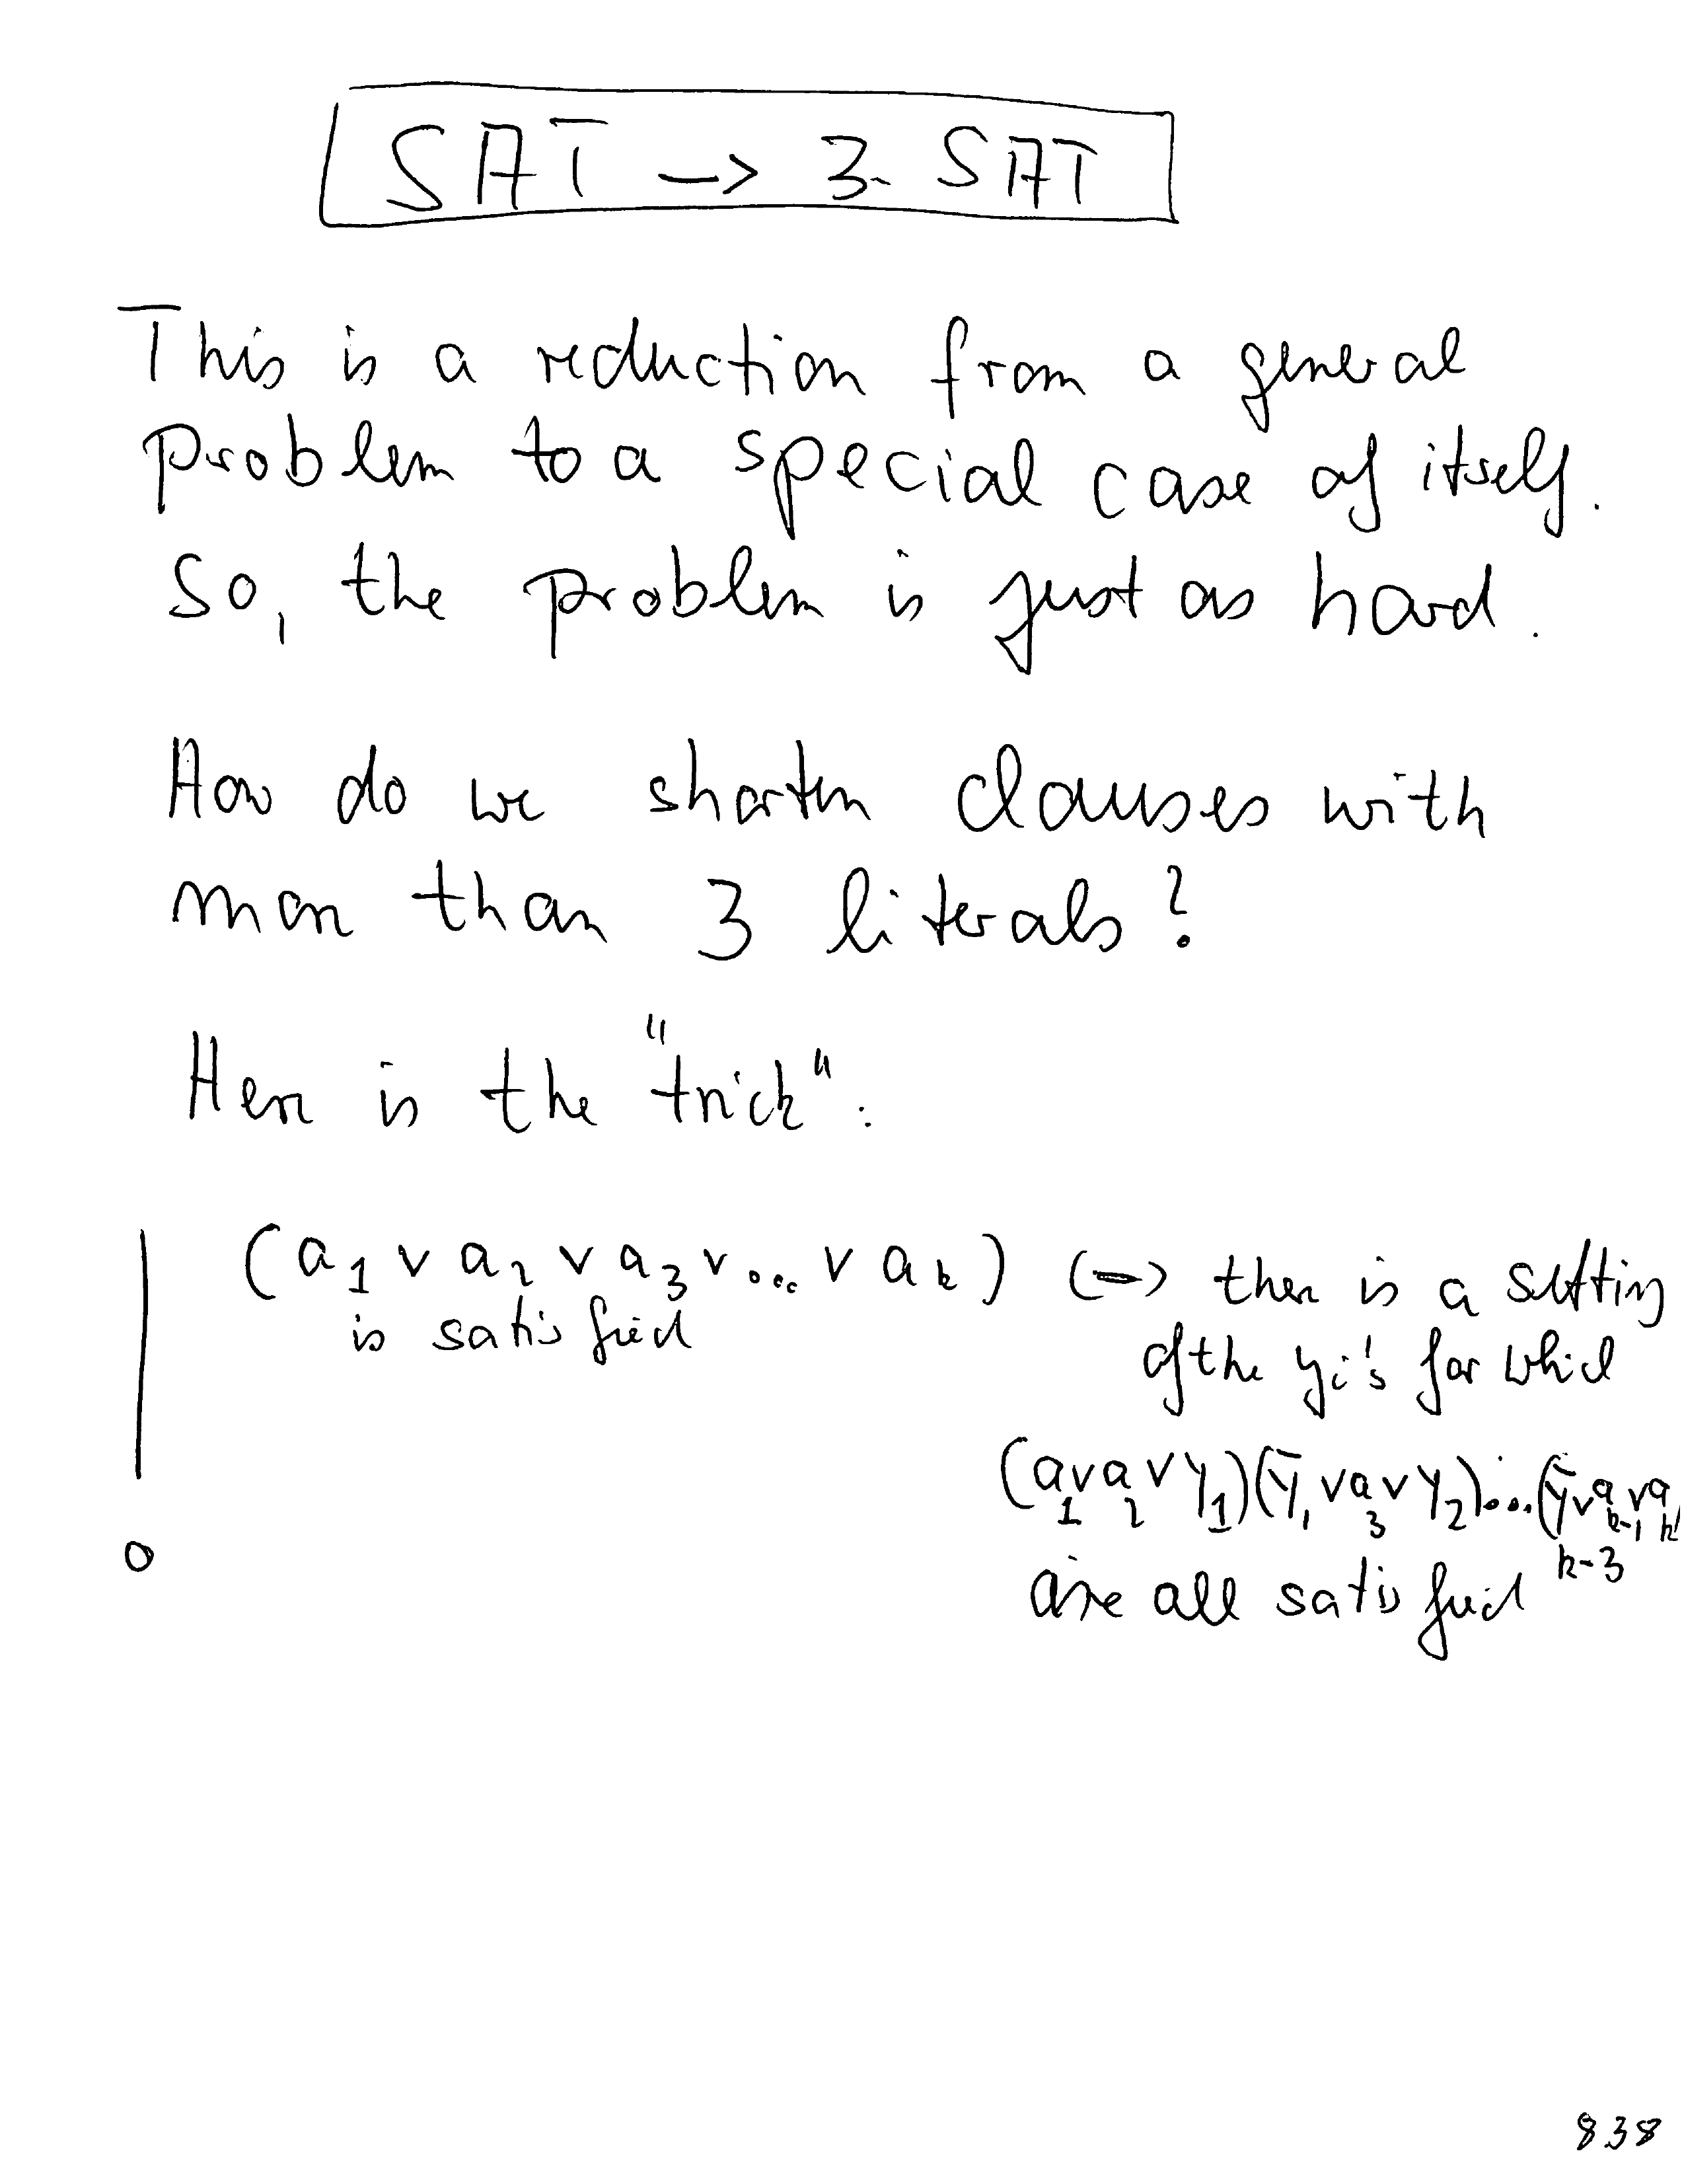 SAT -> 3-SAT
This is a reduction from a general
problem to a special case of itself.
So, the problem is just as hard.
How do we shorten clauses with
more than 3 literals?
Here is the "trick":
(a₁ ∨ a₂ ∨ a₃ ∨ ... ∨ aₖ) <=> there is a setting
is satisfied
of the yᵢ's for which
(a₁ ∨ a₂ ∨ y₁)(ȳ₁ ∨ a₃ ∨ y₂)...(ȳₖ₋₃ ∨ aₖ₋₁ ∨ aₖ
are all satisfied
838